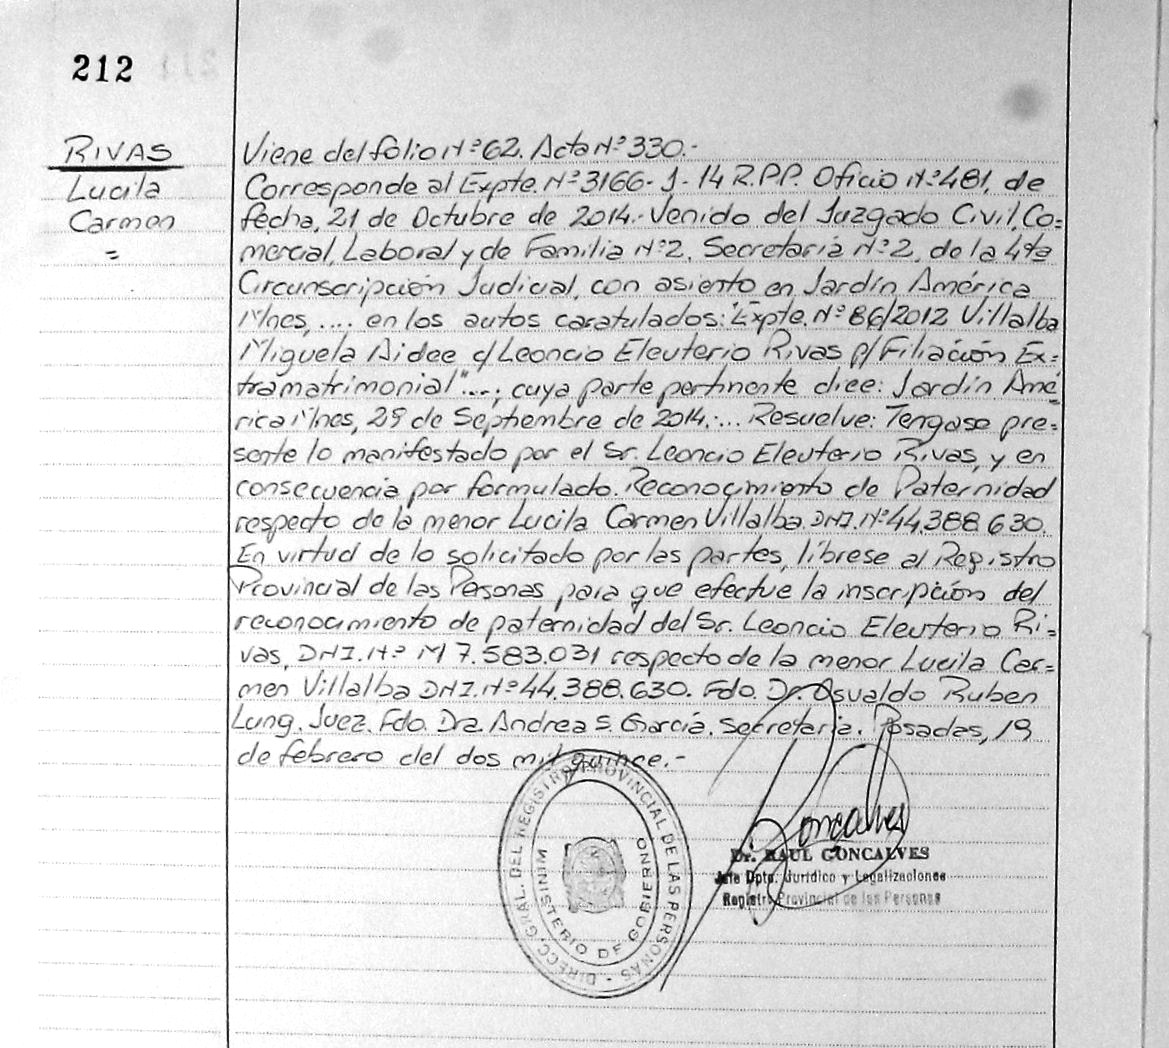 212
RIVAS
Lucila
Carmen
=
Viene del folio Nº 62. Acta Nº 330.-
Corresponde al Expte. Nº 3166-J-14 R.P.P. Oficio Nº 481, de
fecha, 21 de Octubre de 2014.- Venido del Juzgado Civil, Co=
mercial, Laboral y de Familia Nº 2, Secretaría Nº 2, de la 4ta
Circunscripción Judicial, con asiento en Jardín América
M'nes, .... en los autos caratulados: "Expte. Nº 86/2012 Villalba
Miguela Aidee c/ Leoncio Eleuterio Rivas p/ Filiación Ex=
tramatrimonial"...; cuya parte pertinente dice: Jardín Amé=
rica M'nes, 29 de Septiembre de 2014.... Resuelve: Tengase pre=
sente lo manifestado por el Sr. Leoncio Eleuterio Rivas, y en
consecuencia por formulado. Reconocimiento de Paternidad
respecto de la menor Lucila Carmen Villalba. DNI. Nº 44.388.630.
En virtud de lo solicitado por las partes, líbrese al Registro
Provincial de las Personas para que efectue la inscripción del
reconocimiento de paternidad del Sr. Leoncio Eleuterio Ri=
vas, DNI. Nº M 7.583.031 respecto de la menor Lucila Car=
men Villalba DNI. Nº 44.388.630. Fdo. Dr. Osvaldo Ruben
Lung. Juez. Fdo. Dra. Andrea S. García. Secretaria. Posadas, 19
de febrero del dos mil quince.-
DIRECC. GRAL. DEL REGISTRO PROVINCIAL DE LAS PERSONAS
MINISTERIO DE GOBIERNO
Goncalves
Dr. RAUL GONCALVES
Jefe Dpto. Jurídico y Legalizaciones
Registro Provincial de las Personas